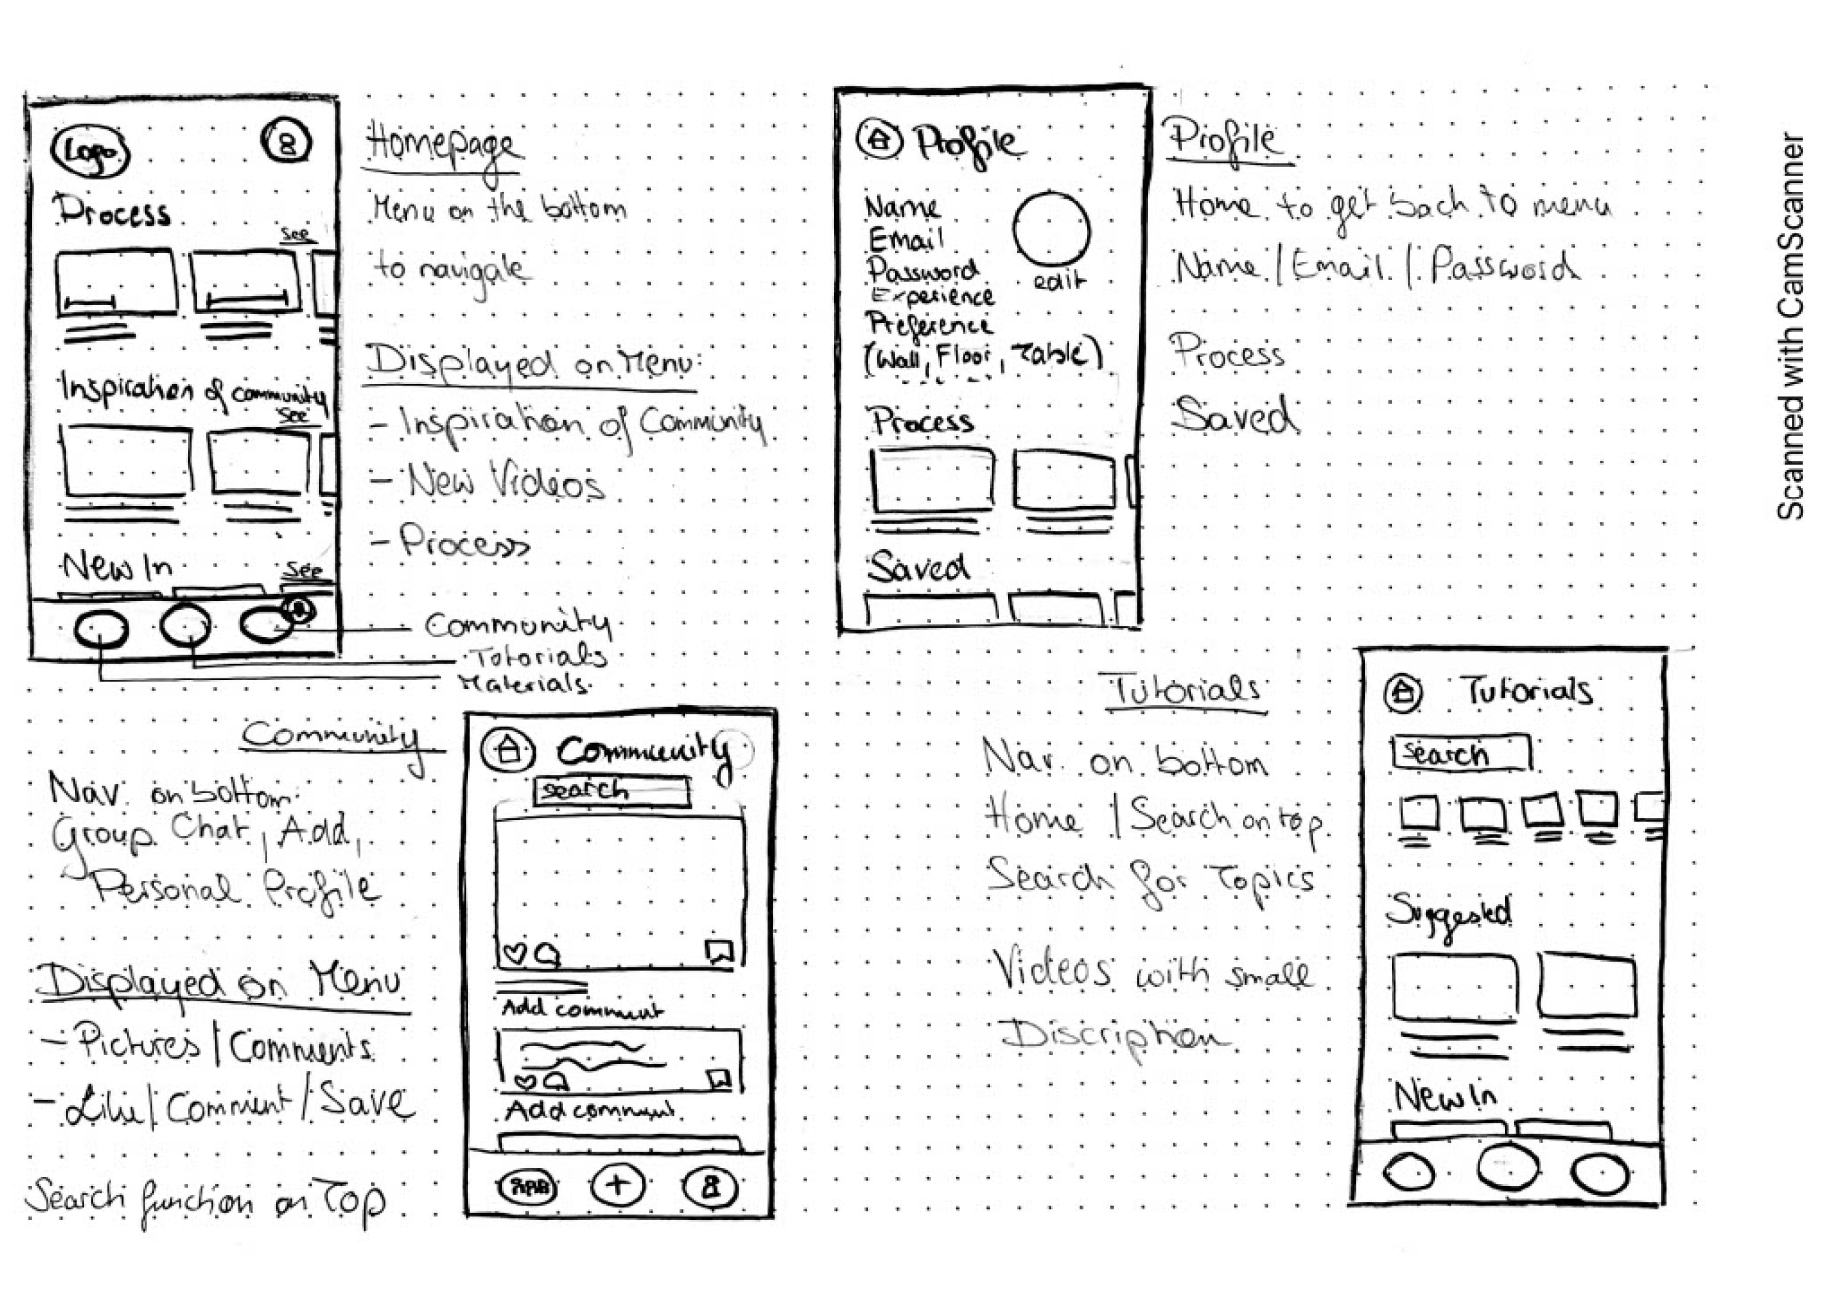 Logo
Process
see
Inspiration of community
see
New In
see
Homepage
Menu on the bottom
to navigate
Displayed on Menu:
- Inspiration of Community
- New Videos
- Process
Community
Totorials
Materials
Profile
Name
Email
edit
Password
Experience
Preference
(Wall, Floor, Table)
Process
Saved
Profile
Home to get back to menu
Name / Email / Password
Process
Saved
Community
Nav. on bottom:
Group Chat, Add,
Personal Profile
Displayed on Menu
- Pictures / Comments
- Like / Comment / Save
Search function on Top
Community
search
Add comment
Add comment
Tutorials
Nav. on bottom
Home / Search on top
Search for Topics
Videos with small
Discription
Tutorials
search
Suggested
New In
Scanned with CamScanner